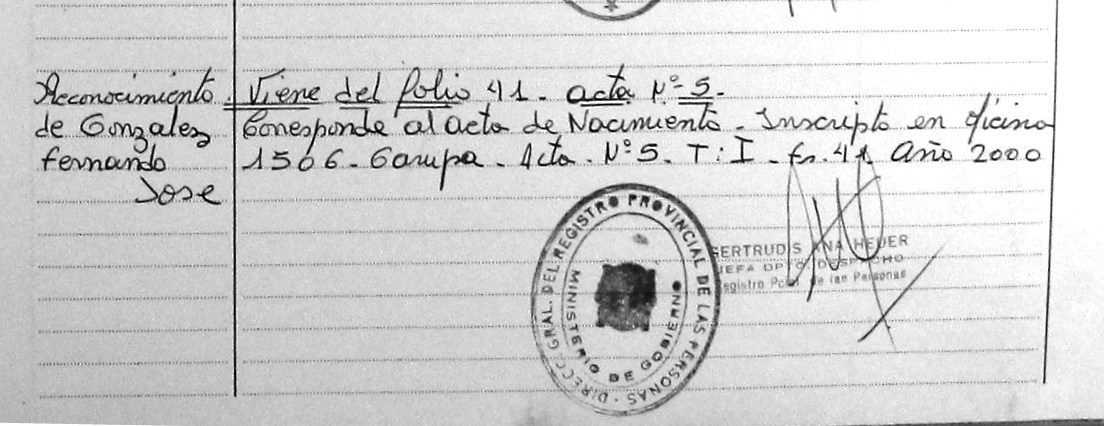 Reconocimiento. Viene del folio 41 - acta Nº 5.
de Gonzalez Corresponde al acta de Nacimiento - Inscripto en oficina
Fernando 1506 - Garupa - Acta - Nº 5 - T: I - fs. 41 Año 2000
Jose
DIRECC. GRAL. DEL REGISTRO PROVINCIAL DE LAS PERSONAS
MINISTERIO DE GOBIERNO
GERTRUDIS ANA HEUER
JEFA DPTO. DESPACHO
Registro Pcial. de las Personas